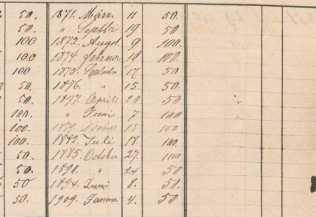 50. 1871. März 11 50.
50. " Septbr 19 50.
100 1872. Augst 9 100.
100 1874. Februar 19 100.
100 1875. 17 50.
50. 1876. " 15. 50.
50. 1877. April 20 50.
100. " Juni 7 100
100. 100
100. 1882. Juli 18. 100.
50. 1885. October 27. 100
50. " 24 50
50 1894. Juni 8. 50.
50. 1909. Januar 4. 50.